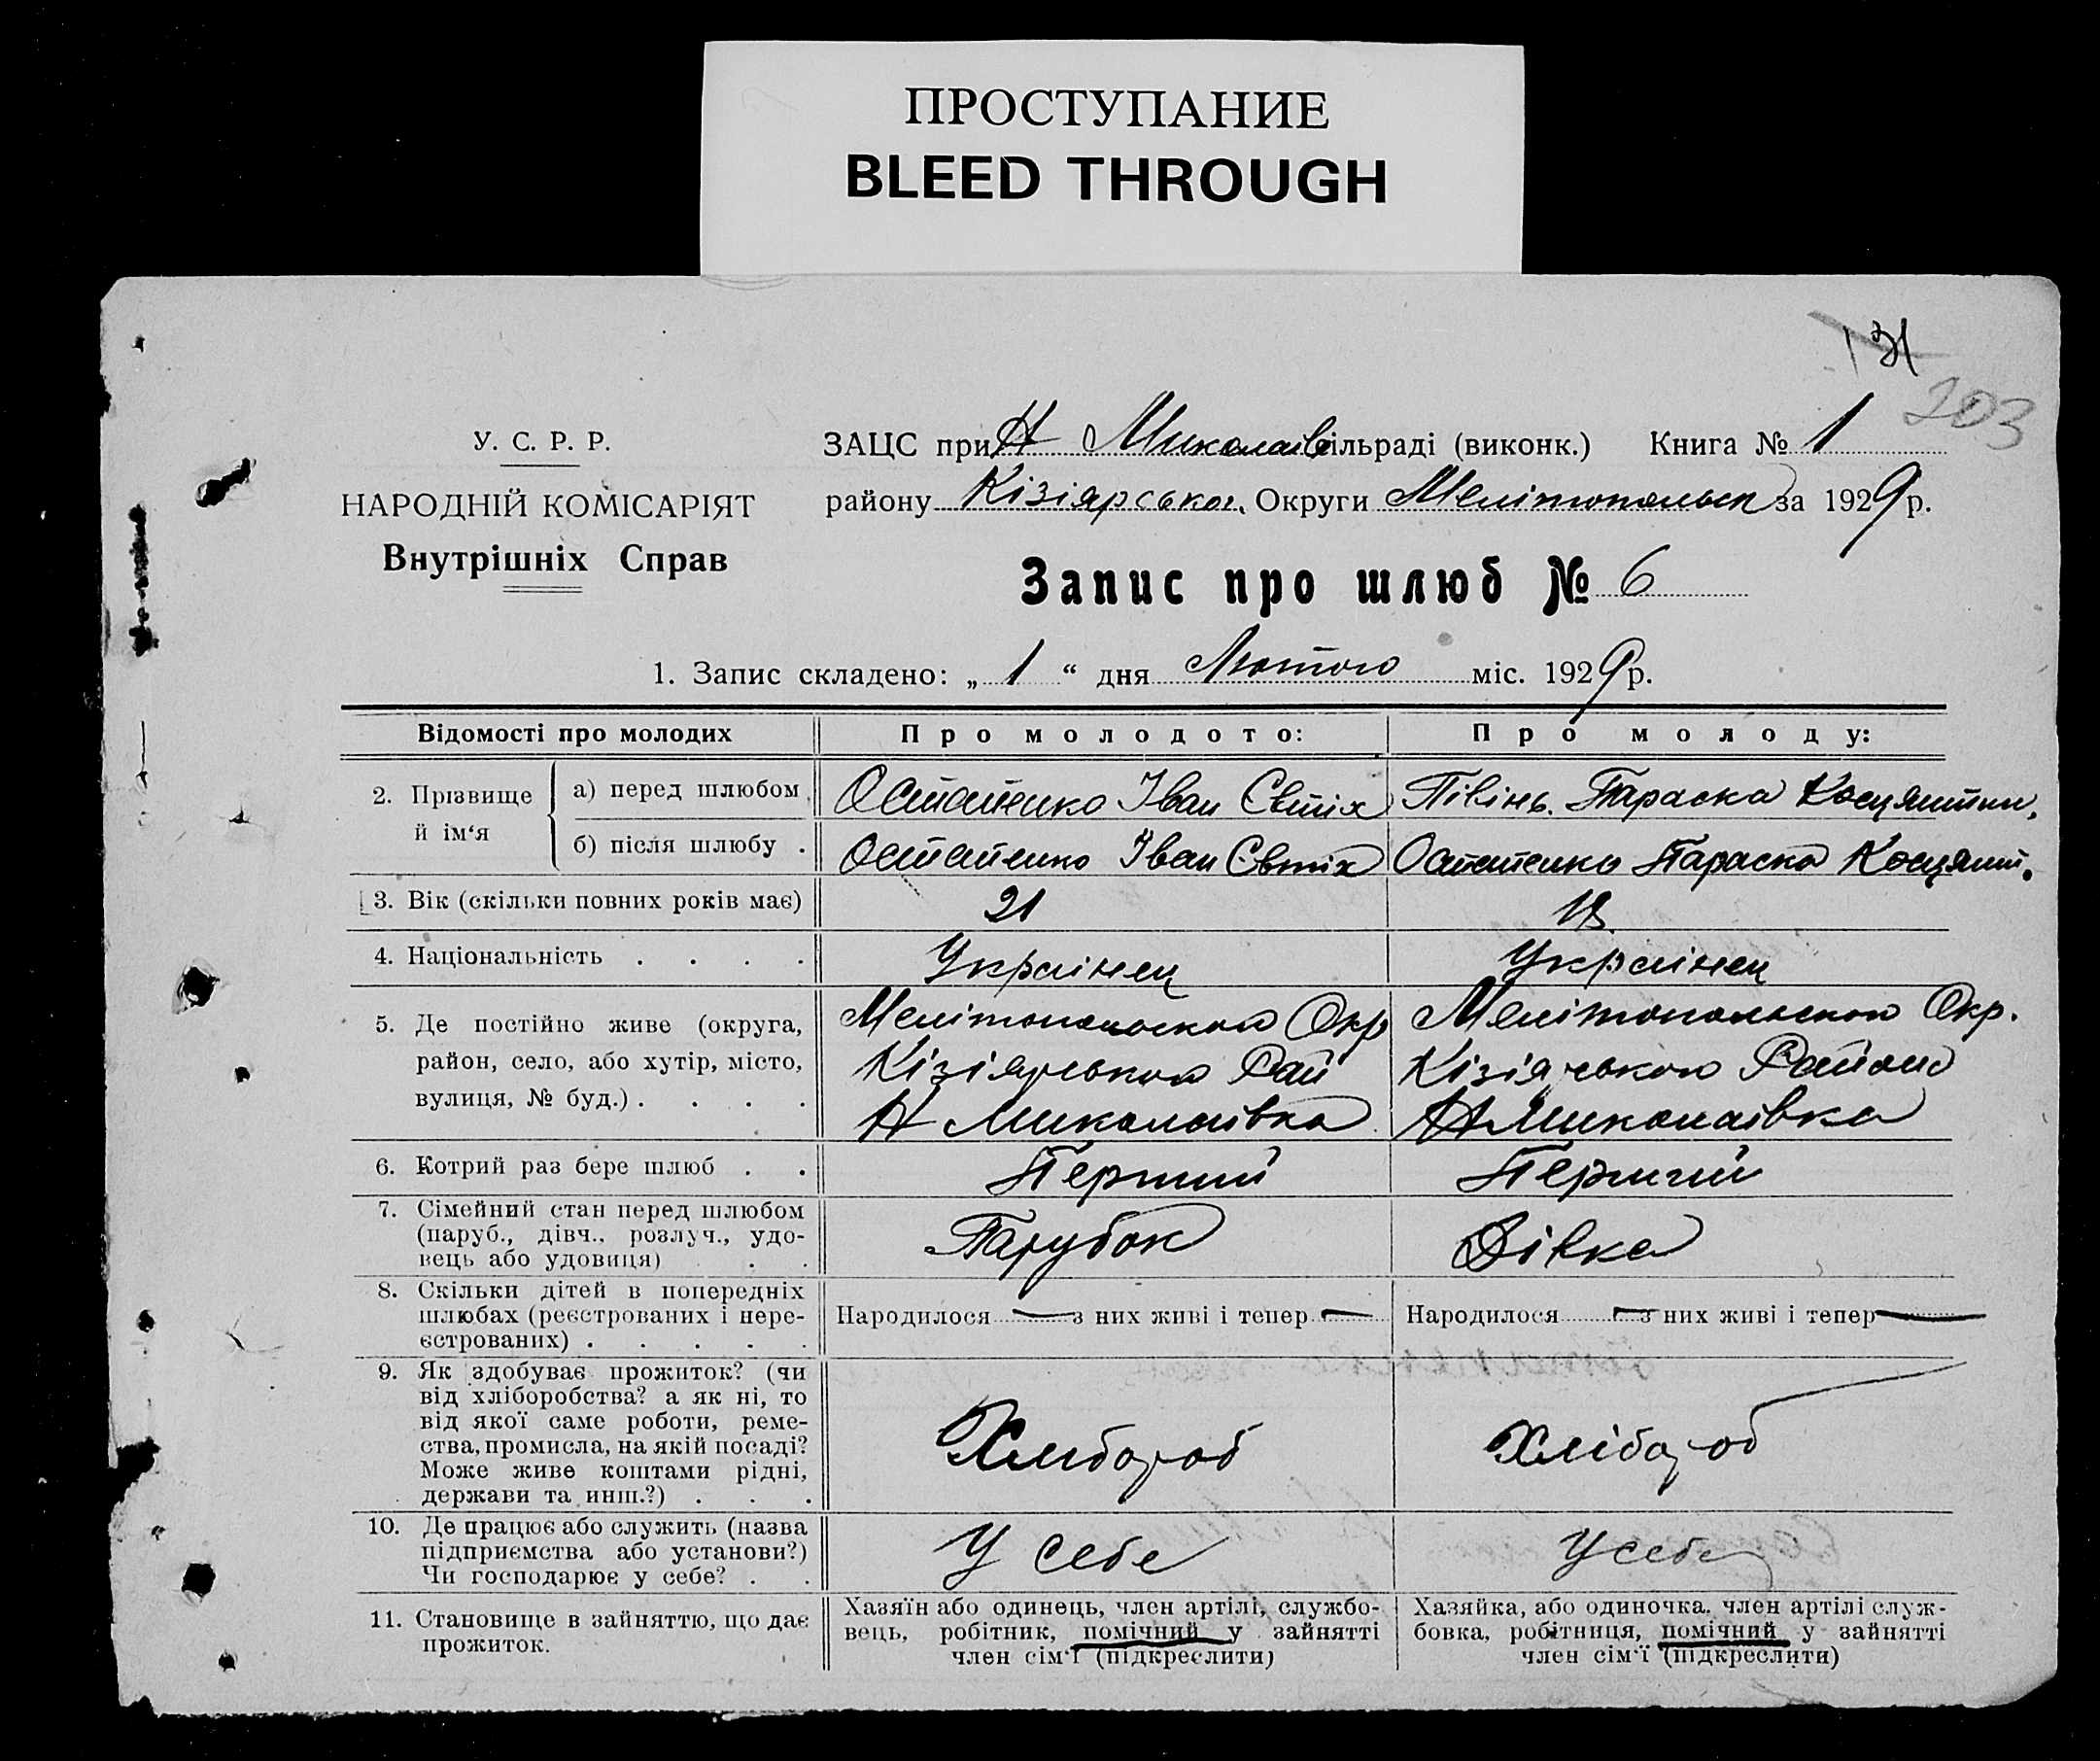 ПРОСТУПАНИЕ
BLEED THROUGH
131
203
У. С. Р. Р.
НАРОДНІЙ КОМІСАРІЯТ
Внутрішніх Справ
ЗАЦС при Н Миколаїв сільраді (виконк.) Книга № 1
району Кізіярської Округи Мелітопольск за 1929 р.
Запис про шлюб № 6
1. Запис складено: „ 1 “ дня Лютого міс. 1929 р.
Відомості про молодих
Про молодого:
Про молоду:
2. Прізвище й ім‘я
а) перед шлюбом
Остапенко Іван Євтіх
Півінь. Параска
б) після шлюбу .
Остапенко Іван Євтіх
Остапенко Параска
3. Вік (скільки повних років має)
21
18
4. Національність . . . .
Українец
Українец
5. Де постійно живе (округа,
район, село, або хутір, місто,
вулиця, № буд.) . . . .
Мелітопольскоі Окр
Кізіярськоі Рай
Н Миколаівка
Мелітопольскоі Окр.
Кізіярського Району
Н Миколаівка
6. Котрий раз бере шлюб . .
Перший
Перший
7. Сімейний стан перед шлюбом
(паруб., дівч., розлуч., удо-
вець або удовиця) . .
Парубок
Дівка
8. Скільки дітей в попередніх
шлюбах (реєстрованих і нере-
єстрованих) . . . . .
Народилося — з них живі і тепер —
Народилося — з них живі і тепер —
9. Як здобуває прожиток? (чи
від хліборобства? а як ні, то
від якої саме роботи, реме-
ства, промисла, на якій посаді?
Може живе коштами рідні,
держави та инш.?) . . .
Хлибороб
Хлібороб
10. Де працює або служить (назва
підприємства або установи?)
Чи господарює у себе? . .
У себе
У себе
11. Становище в зайняттю, що дає
прожиток.
Хазяїн або одинець, член артілі, службо-
вець, робітник, помічний у зайнятті
член сім‘ї (підкреслити)
Хазяйка, або одиночка, член артілі служ-
бовка, робітниця, помічний у зайнятті
член сім‘ї (підкреслити)